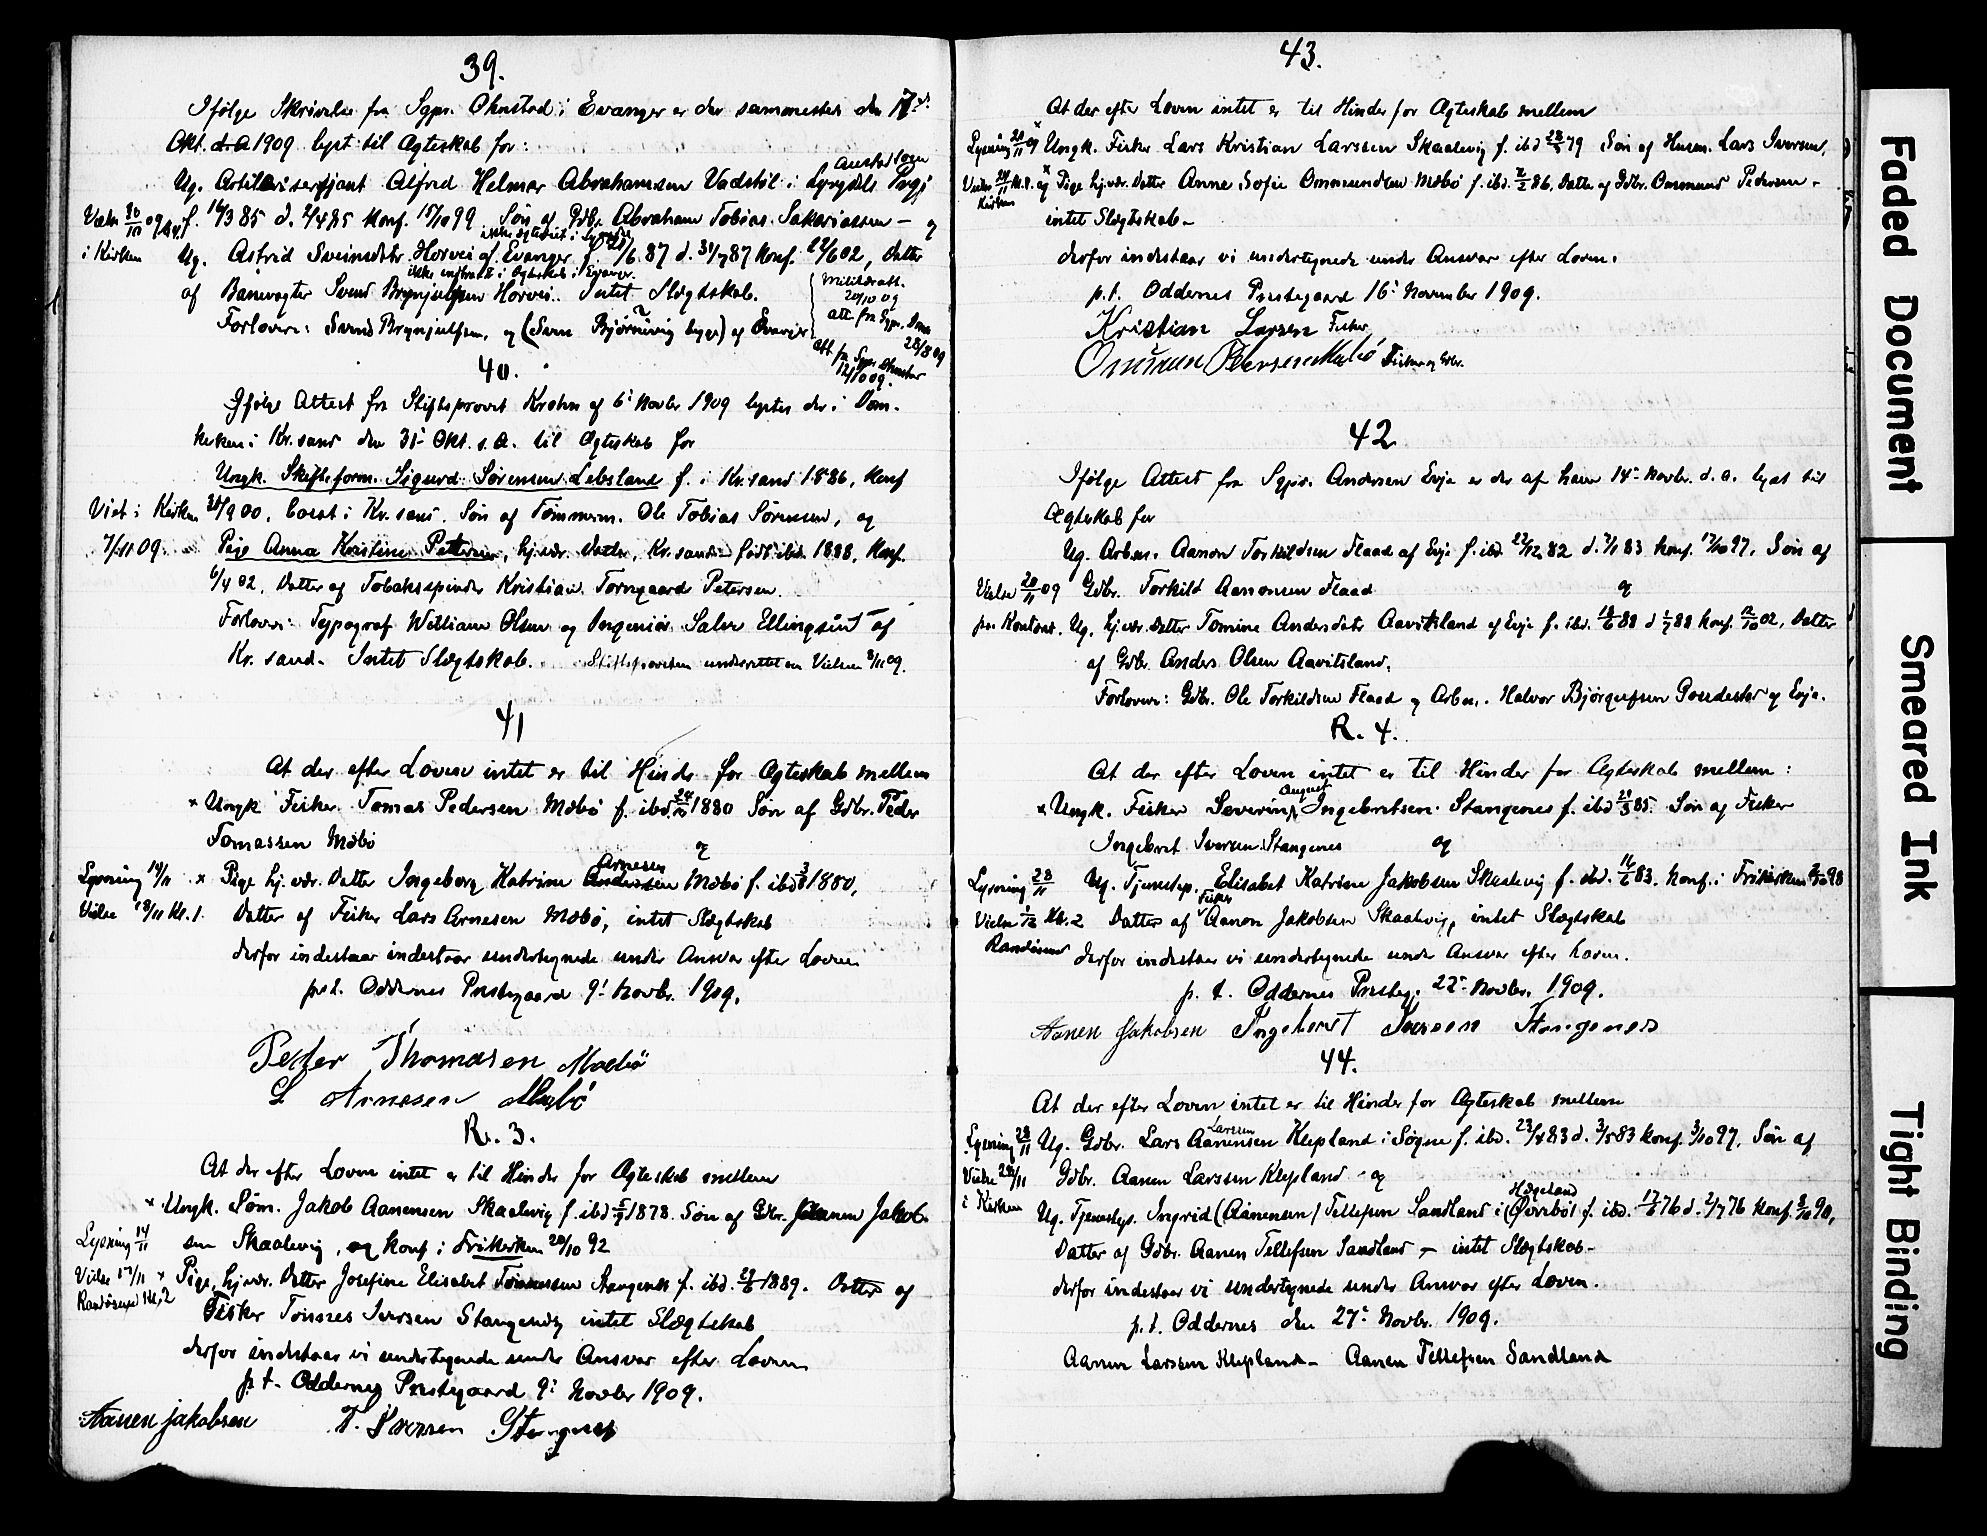 39.
Ifölge Skrivelse fra Sgpr. Ohnstad i Evanger er der sammesteds den 17de
Okt. d.A. 1909 lyst til Ægteskab for:
Ug. Artillerisersjant Alfred Helmer Abrahamsen Vadstöl i Lyngdals Prgj
f. 14/3 85 d. 2/4 85 konf. 15/10 99 Søn af Gdbr. Abraham Tobias Sakariassen – og
Vielse 30/10 09
i Kirken
Ug. Astrid Sveinsdtr. Horvei af Evanger f. /6 87 d. 31/7 87 konf. 22/6 02, Datter
af Banevogter Svend Brynjulfsen Horvei. Intet Slægtskab.
ikke indtraadt i Ægteskab i Evanger.
Militæratt.
20/10 09
att. fra Sgpr.
28/8 09
att. fra Sgpr. Ohnstad
12/10 09.
Forlovere: Svend Brynjulfsen, og (Sven Bjørnevig begge) af Evanger
40.
Ifølge Attest fra Stiftsprovst Krohn af 6' Novbr 1909 lystes der i Dom-
kirken i Kr.sand den 31- Okt. s.A. til Ægteskab for
Ungk. Skofteform. Sigurd Sørensen Lebsland f. i Kr.sand 1886, konf
/9 00, bosat i Kr.sand. Søn af Tømmerm. Ole Tobias Sørensen, og
Viet i Kirken
7/11 09.
Pige Anna Kristine Petersen, hj.vær. Datter, Kr.sand født ibd. 1888, konf.
6/4 02, Datter af Tobaksspinder Kristian Torngaard Petersen.
Forlovere: Typograf William Olsen og Ingeniør Salve Ellingsen af
Kr.sand. Intet Slægtskab. Stiftsprovsten underrettet om Vielsen 8/11 09.
41
At der efter Loven intet er til Hinder for Ægteskab mellem
x Ungk Fisker Tomas Pedersen Mæbø f. ibd 1880 Søn af Gdbr. Peder
Tomassen Mæbø og
Lysning 14/11
Vielse 18/11 Kl. 1.
x Pige hj.vær. Datter Ingeborg Katrine Andersen Arnesen Mæbø f. ibd 3/8 1880,
Datter af Fisker Lars Arnesen Mæbø, intet Slægtskab
derfor indestaar indestaar undertegnede under Ansvar efter Loven
p.t. Oddernes Prestegaard 9' Novbr. 1909.
Peder Thomasen Mæbø
L Arnesen Mæbø
R. 3.
At der efter Loven intet er til Hinder for Ægteskab mellem
x Ungk. Søm. Jakob Aanensen Skaalevig f. ibd 5/9 1878. Søn af Gdbr. Aanen Jakob-
sen Skaalevig, og konf. i Frikirken 20/10 92
Lysning 14/11
Vielse 17/11
Randøsund Kl. 2
x Pige, hj.vær. Datter Josefine Elisabet Tomassen Stangenes f. ibd. 29/6 1889. Datter af
Fisker Tomas Iversen Stangenes intet Slægtskab
derfor indestaar vi undertegnede under Ansvar efter Loven
p.t. Oddernes Prestegaard 9' Novbr 1909.
Aanen Jakobsen T. Iversen Stangenes
43.
At der efter Loven intet er til Hinder for Ægteskab mellem
Lysning 20/11 09
x Ungk. Fisker Lars Kristian Larssen Skaalevig f. ibd 79 Søn af Husm. Lars Iversen,
Kirken
og x Pige hj.vær. Datter Anne Sofie Ommundsen Mæbø f. ibd. 2/2 86, Datter af Gdbr. Ommund Pedersen –
intet Slægtskab –
derfor indestaar vi undertegnede under Ansvar efter Loven.
p.t. Oddernes Prestegaard 16' November 1909.
Kristian Larsen Fisker
Ommun Pedersen Mæbø Fisker og Gdbr.
42
Ifølge Attest fra Sgpr. Andersen Evje er der af ham 14- Novbr. d.A. lyst til
Ægteskab for
Ug. Arbm. Aanon Torkildsen Flaad af Evje f. ibd. 22/12 82 d. 7/1 83 konf. 17/10 97. Søn af
Gdbr. Torkild Aanonsen Flaad og
Vielse 20/11 09
paa Kontoret.
Ug. hj.vær. Datter Tomine Andersdatter Aavitsland af Evje f. ibd. 18/6 88 d 1/7 88 konf. 12/10 02, Datter
af Gdbr. Anders Olsen Aavitsland.
Forlovere: Gdbr. Ole Torkildsen Flaad og Arbm. Halvor Bjørgufsen af Evje.
R. 4.
At der efter Loven intet er til Hinder for Ægteskab mellem:
x Ungk. Fisker Severin August Ingebretsen Stangenes f. ibd 21/5 85. Søn af Fisker
Ingebret Iversen Stangenes og
Lysning 28/11
Vielse 1/12 Kl. 2
Randøsund
Ug. Tjenestep. Elisabet Katrine Jakobsen Skaalevig f. ibd. 16/6 83. konf. i Frikirken 98
Datter af Fisker Aanon Jakobsen Skaalevig, intet Slægtskab
derfor indestaar vi undertegnede under Ansvar efter Loven.
p.t. Oddernes Presteg. 22- Novbr. 1909.
Aanen Jakobsen Ingebret Iversen Stangenes
44.
At der efter Loven intet er til Hinder for Ægteskab mellem
Lysning 28/11
i Kirken
Ug. Gdbr. Lars Aanensen Larssen Klepland i Søgne f. ibd. 23/4 83 d. 3/5 83 konf. 3/10 97, Søn af
Gdbr. Aanen Larssen Klepland – og
Ug. Tjenestep. Ingrid (Aanensen) Tellefsen Sandland i (Øvrebø) Hægeland f. ibd. 17/6 76 d. 2/7 76 konf. 5/10 90,
Datter af Gdbr. Aanen Tellefsen Sandland – intet Slægtskab –
derfor indestaar vi undertegnede under Ansvar efter Loven.
p.t. Oddernes den 27' Novbr. 1909.
Aanen Larssen Klepland – Aanen Tellefsen Sandland
Faded Document
Smeared Ink
Tight Binding